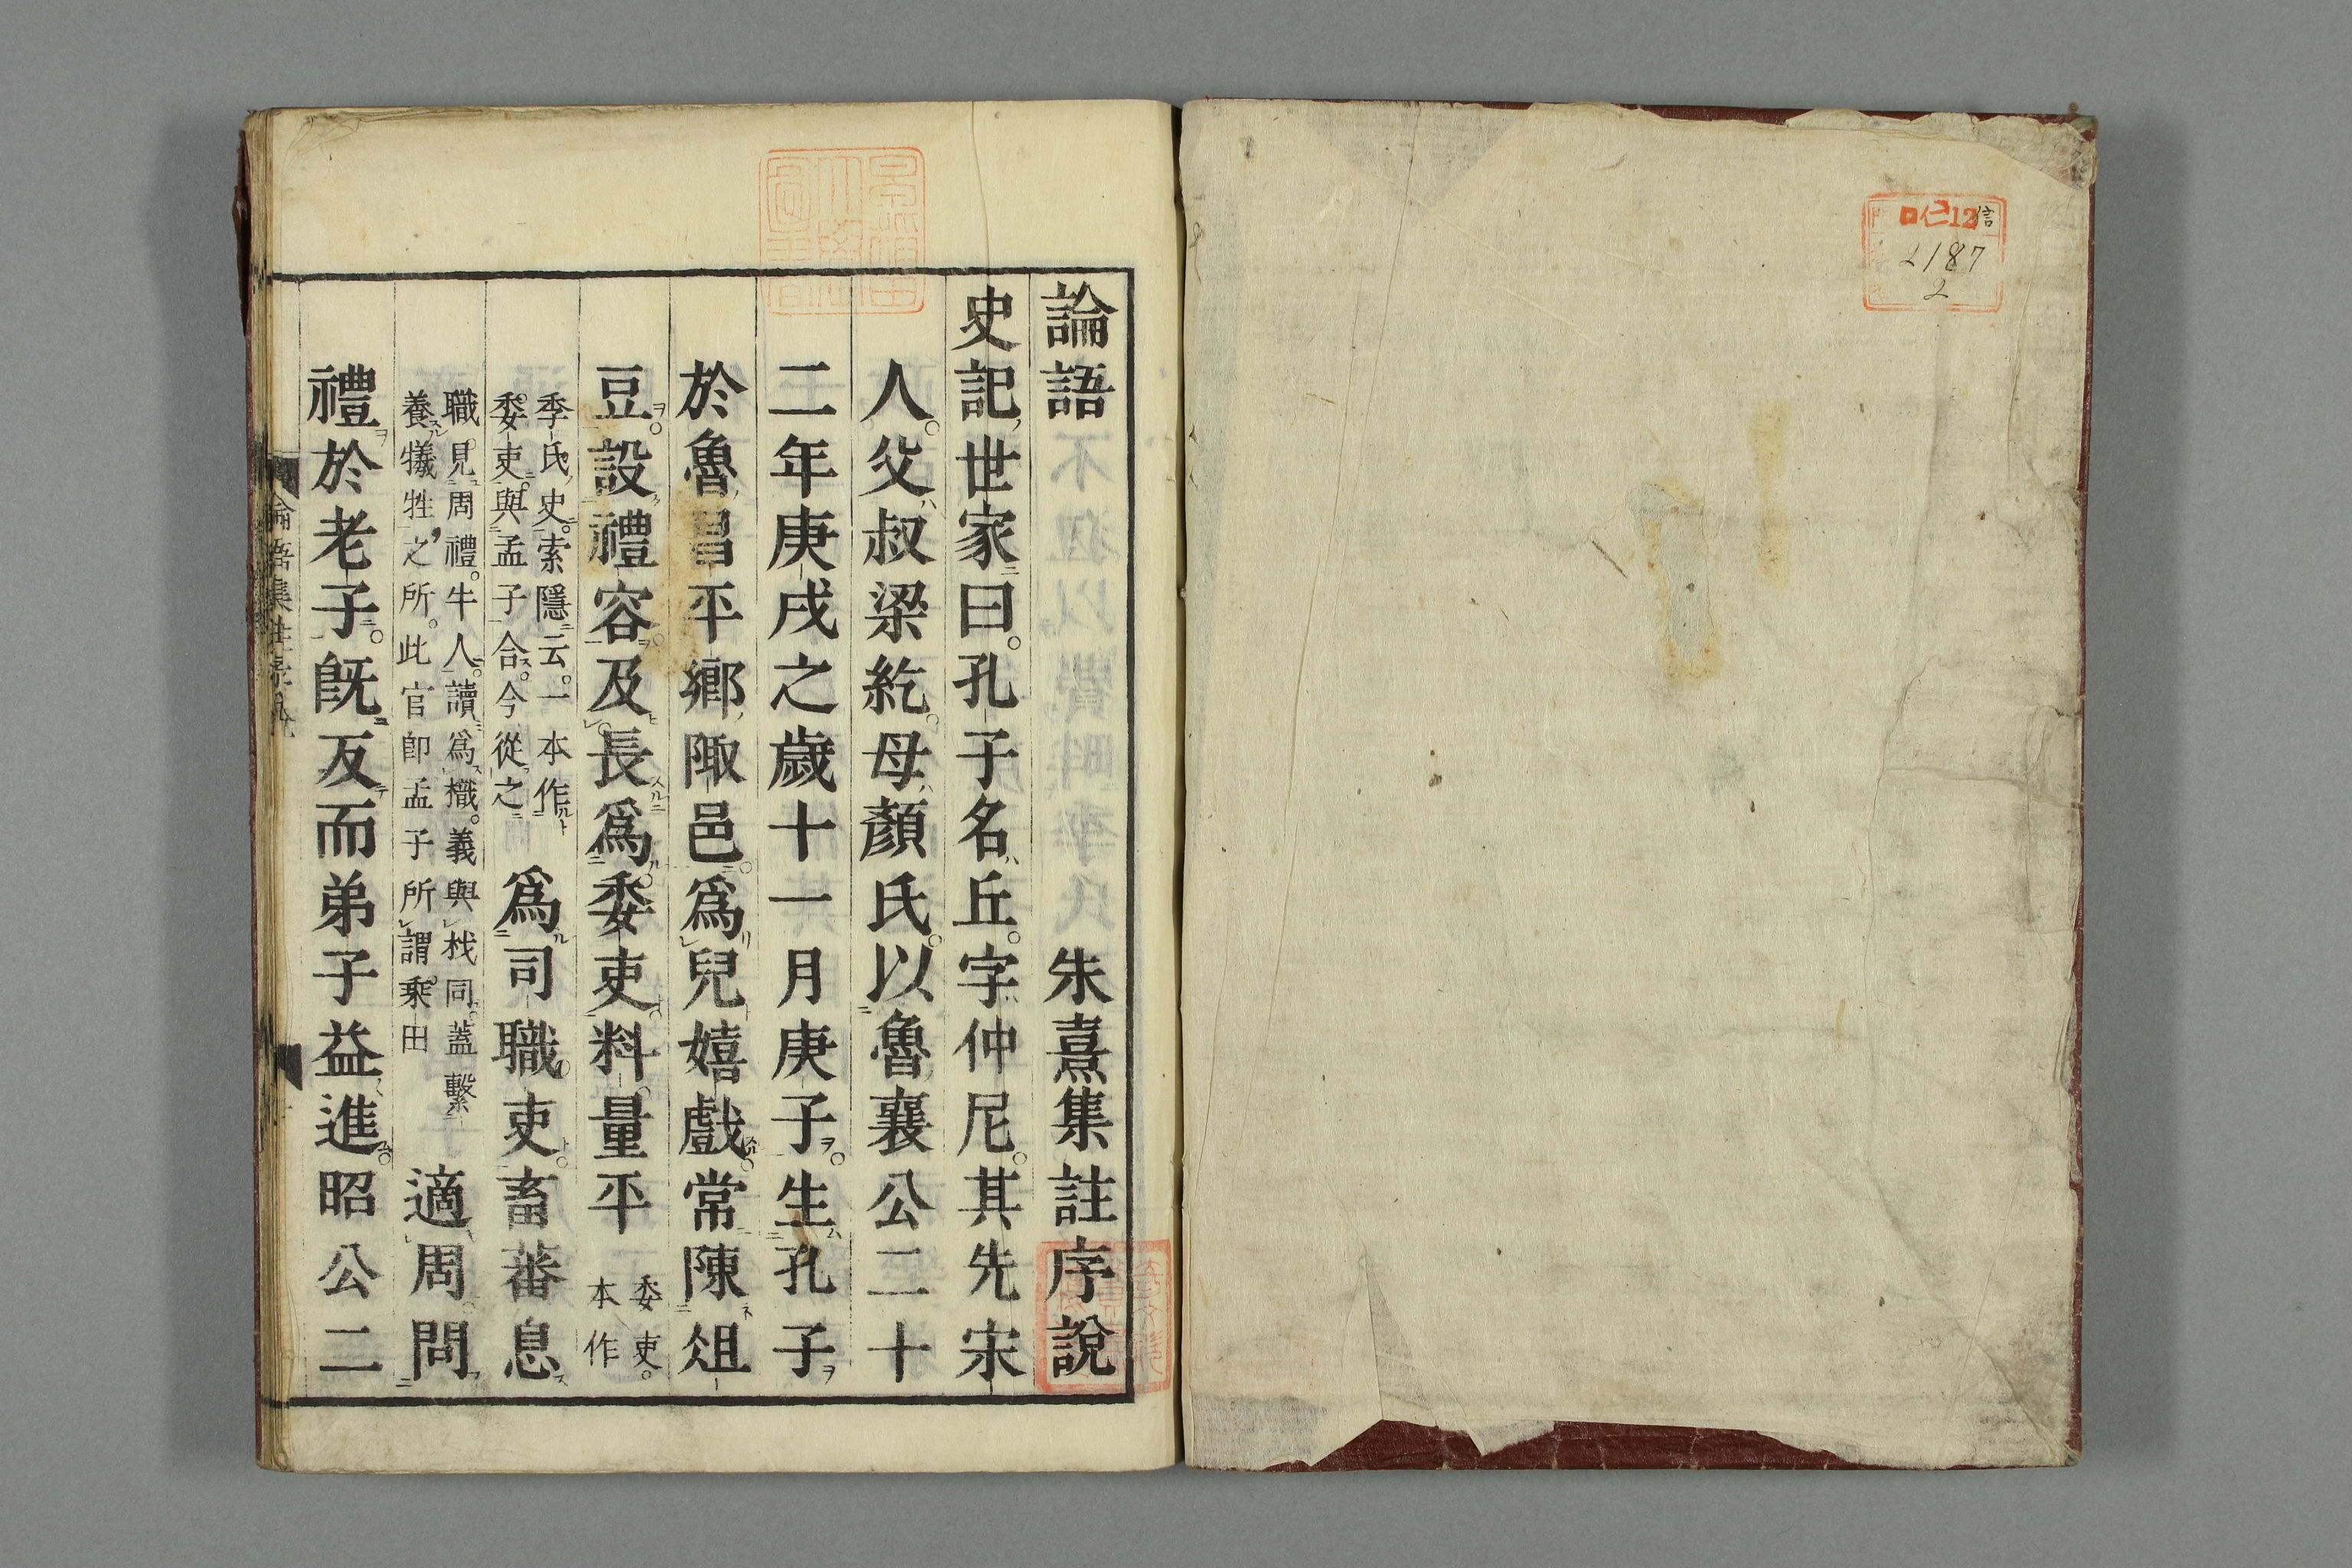 論語　朱熹集註序說
史記世家曰。孔子名丘。字仲尼。其先宋
人。父叔梁紇。母顏氏。以魯襄公二十
二年庚戌之歲十一月庚子。生孔子
於魯昌平鄉陬邑。爲兒嬉戲。常陳俎
豆。設禮容。及長爲委吏。料量平
委吏。
本作
季氏史。索隱云。一本作
委吏。與孟子合。今從之
爲司職吏。畜蕃息
職見周禮牛人。讀爲樴。義與杙同。蓋繫
養犧牲之所。此官卽孟子所謂乘田
適周。問
禮於老子。旣反而弟子益進。昭公二
信
2187
2